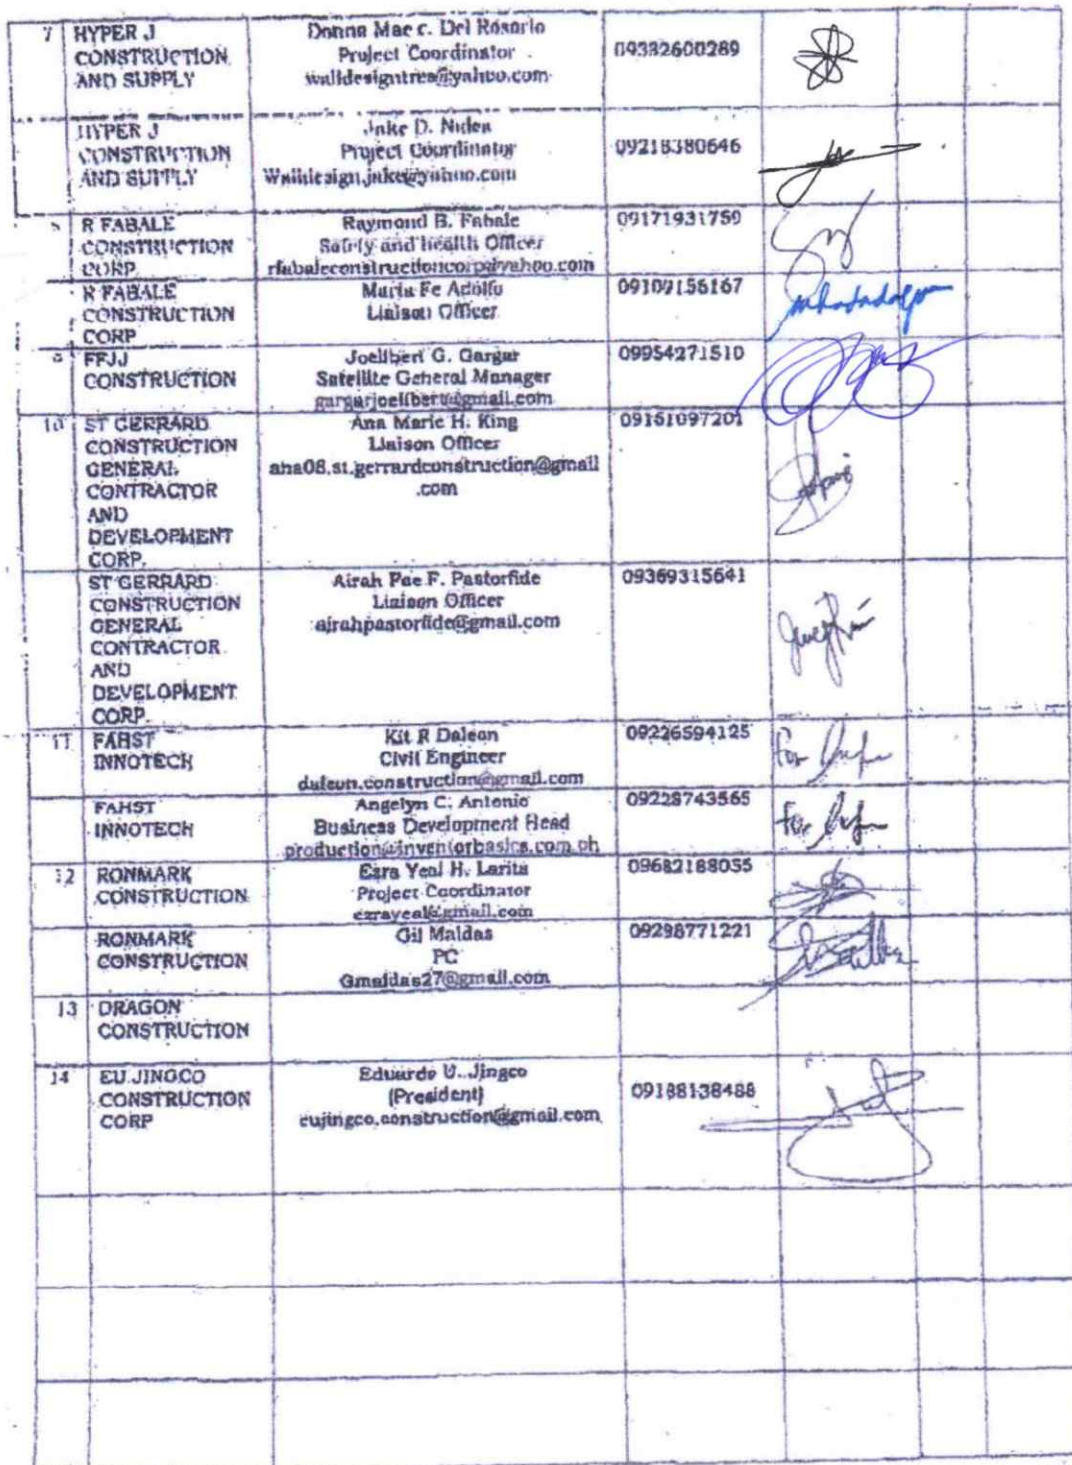 7 HYPER J
CONSTRUCTION
AND SUPPLY
Donna Mae c. Del Rosario
Project Coordinator
walldesigntrea@yahoo.com
09332600289
HYPER J
CONSTRUCTION
AND SUPPLY
Jake D. Niden
Project Coordinator
Walldesign.jake@yahoo.com
09218380646
R FABALE
CONSTRUCTION
CORP
Raymond B. Fabale
Safety and health Officer
rfabaleconstructioncorp@yahoo.com
09171931759
R FABALE
CONSTRUCTION
CORP
Maria Fe Adolfo
Liaison Officer
09109156167
FFJJ
CONSTRUCTION
Joelibert G. Gargar
Satellite General Manager
gargarjoelibert@gmail.com
09954271510
10 ST GERRARD
CONSTRUCTION
GENERAL
CONTRACTOR
AND
DEVELOPMENT
CORP.
Ana Marie H. King
Liaison Officer
ana08.st.gerrardconstruction@gmail
.com
09151097201
ST GERRARD
CONSTRUCTION
GENERAL
CONTRACTOR
AND
DEVELOPMENT
CORP.
Airah Pae F. Pastorfide
Liaison Officer
airahpastorfide@gmail.com
09369315641
11 FAHST
INNOTECH
Kit R Daleon
Civil Engineer
daleon.construction@gmail.com
09226594125
For
FAHST
INNOTECH
Angelyn C. Antonio
Business Development Head
production@inventorbasics.com.ph
09228743565
For
12 RONMARK
CONSTRUCTION
Ezra Yeal H. Larita
Project Coordinator
ezrayeal@gmail.com
09682188035
RONMARK
CONSTRUCTION
Gil Maldas
PC
Gmaldas27@gmail.com
09298771221
13 DRAGON
CONSTRUCTION
14 EU JINGCO
CONSTRUCTION
CORP
Eduardo U. Jingco
(President)
eujingco.construction@gmail.com
09188138488